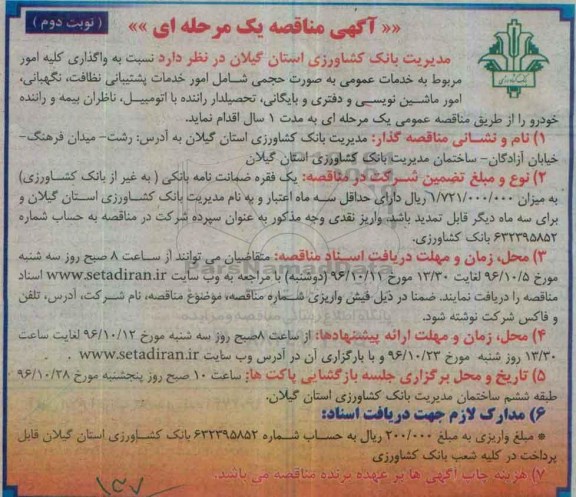 «« آگهی مناقصه یک مرحله ای »»
( نوبت دوم )
بانک کشاورزی
مدیریت بانک کشاورزی استان گیلان در نظر دارد نسبت به واگذاری کلیه امور
مربوط به خدمات عمومی به صورت حجمی شامل امور خدمات پشتیبانی نظافت، نگهبانی،
امور ماشین نویسی و دفتری و بایگانی، تحصیلدار راننده با اتومبیل، ناظران بیمه و راننده
خودرو را از طریق مناقصه عمومی یک مرحله ای به مدت ۱ سال اقدام نماید.
۱) نام و نشانی مناقصه گذار: مدیریت بانک کشاورزی استان گیلان به آدرس: رشت- میدان فرهنگ-
خیابان آزادگان- ساختمان مدیریت بانک کشاورزی استان گیلان
۲) نوع و مبلغ تضمین شرکت در مناقصه: یک فقره ضمانت نامه بانکی ( به غیر از بانک کشاورزی)
به میزان ۱/۷۲۱/۰۰۰/۰۰۰ ریال دارای حداقل سه ماه اعتبار و به نام مدیریت بانک کشاورزی استان گیلان و
برای سه ماه دیگر قابل تمدید باشد. واریز نقدی وجه مذکور به عنوان سپرده شرکت در مناقصه به حساب شماره
۶۳۲۳۹۵۸۵۲ بانک کشاورزی.
۳) محل، زمان و مهلت دریافت اسناد مناقصه: متقاضیان می توانند از ساعت ۸ صبح روز سه شنبه
مورخ ۹۶/۱۰/۵ لغایت ۱۳/۳۰ مورخ ۹۶/۱۰/۱۱ (دوشنبه) با مراجعه به وب سایت www.setadiran.ir اسناد
مناقصه را دریافت نمایند. ضمنا در ذیل فیش واریزی شماره مناقصه، موضوع مناقصه، نام شرکت، آدرس، تلفن
و فاکس شرکت نوشته شود.
۴) محل، زمان و مهلت ارائه پیشنهادها: از ساعت ۸صبح روز سه شنبه مورخ ۹۶/۱۰/۱۲ لغایت ساعت
۱۳/۳۰ روز شنبه مورخ ۹۶/۱۰/۲۳ و با بارگزاری آن در آدرس وب سایت www.setadiran.ir
۵) تاریخ و محل برگزاری جلسه بازگشایی پاکت ها: ساعت ۱۰ صبح روز پنجشنبه مورخ ۹۶/۱۰/۲۸
طبقه ششم ساختمان مدیریت بانک کشاورزی استان گیلان.
۶) مدارک لازم جهت دریافت اسناد:
* مبلغ واریزی به مبلغ ۲۰۰/۰۰۰ ریال به حساب شماره ۶۳۲۳۹۵۸۵۲ بانک کشاورزی استان گیلان قابل
پرداخت در کلیه شعب بانک کشاورزی
۷) هزینه چاپ آگهی ها بر عهده برنده مناقصه می باشد.